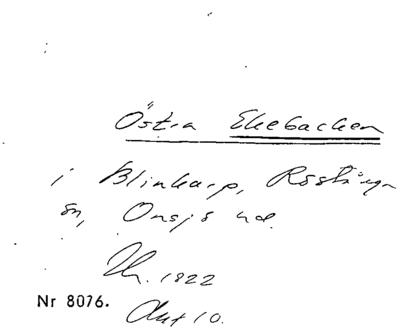 Östra Ekebacken
i Blinkarp, Röstånga
sn, Onsjö hd.
Th. 1822
Nr 8076.
Akt 10.